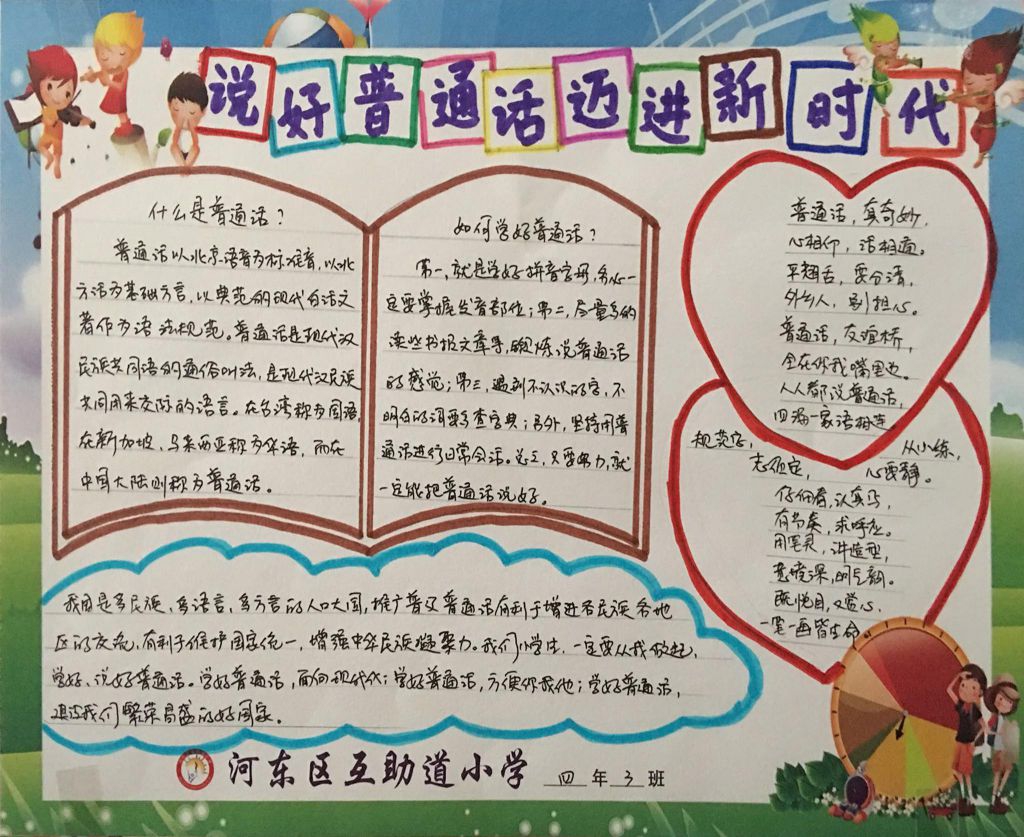 说好普通话迈进新时代
什么是普通话?
普通话以北京语音为标准音,以北
方话为基础方言,以典范的现代白话文
著作为语法规范。普通话是现代汉
民族共同语的通俗叫法,是现代汉民族
共同用来交际的语言。在台湾称为国语,
在新加坡、马来西亚称为华语,而在
中国大陆则称为普通话。
如何学好普通话?
第一,就是学好拼音字母,务必一
定要掌握发音部位;第二,尽量多的
读些书报文章等,锻炼说普通话
的感觉;第三,遇到不认识的字,不
明白的词要多查字典;另外,坚持用普
通话进行日常会话。总之,只要努力,就
一定能把普通话说好。
普通话,真奇妙,
心相印,话相通。
平翘舌,要分清,
外乡人,别担心。
普通话,友谊桥,
全在你我嘴里边。
人人都说普通话,
四海一家语相连
规范字,从小练,
志须定,心要静。
仔细看,认真写,
有节奏,求呼应。
用笔灵,讲造型,
既悦目,又赏心,
一笔一画皆生命。
我国是多民族、多语言、多方言的人口大国,推广普及普通话有利于增进各民族各地
区的交流,有利于维护国家统一,增强中华民族凝聚力。我们小学生,一定要从我做起,
学好、说好普通话。学好普通话,面向现代化;学好普通话,方便你我他;学好普通话,
建设我们繁荣昌盛的好国家。
河东区互助道小学 四 年 3 班